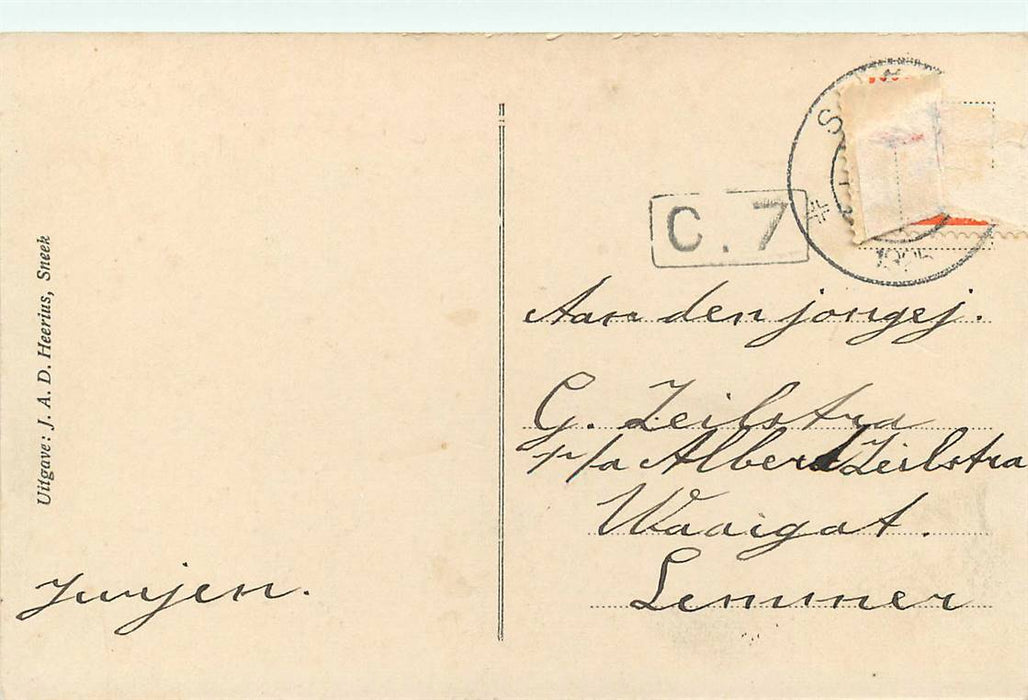 Uitgave: J. A. D. Heerius, Sneek
C. 7
Aan den jongej.
G. Zeilstra
p/a Albert Zeilstra
Waaigat.
Lemmer
Jurjen.